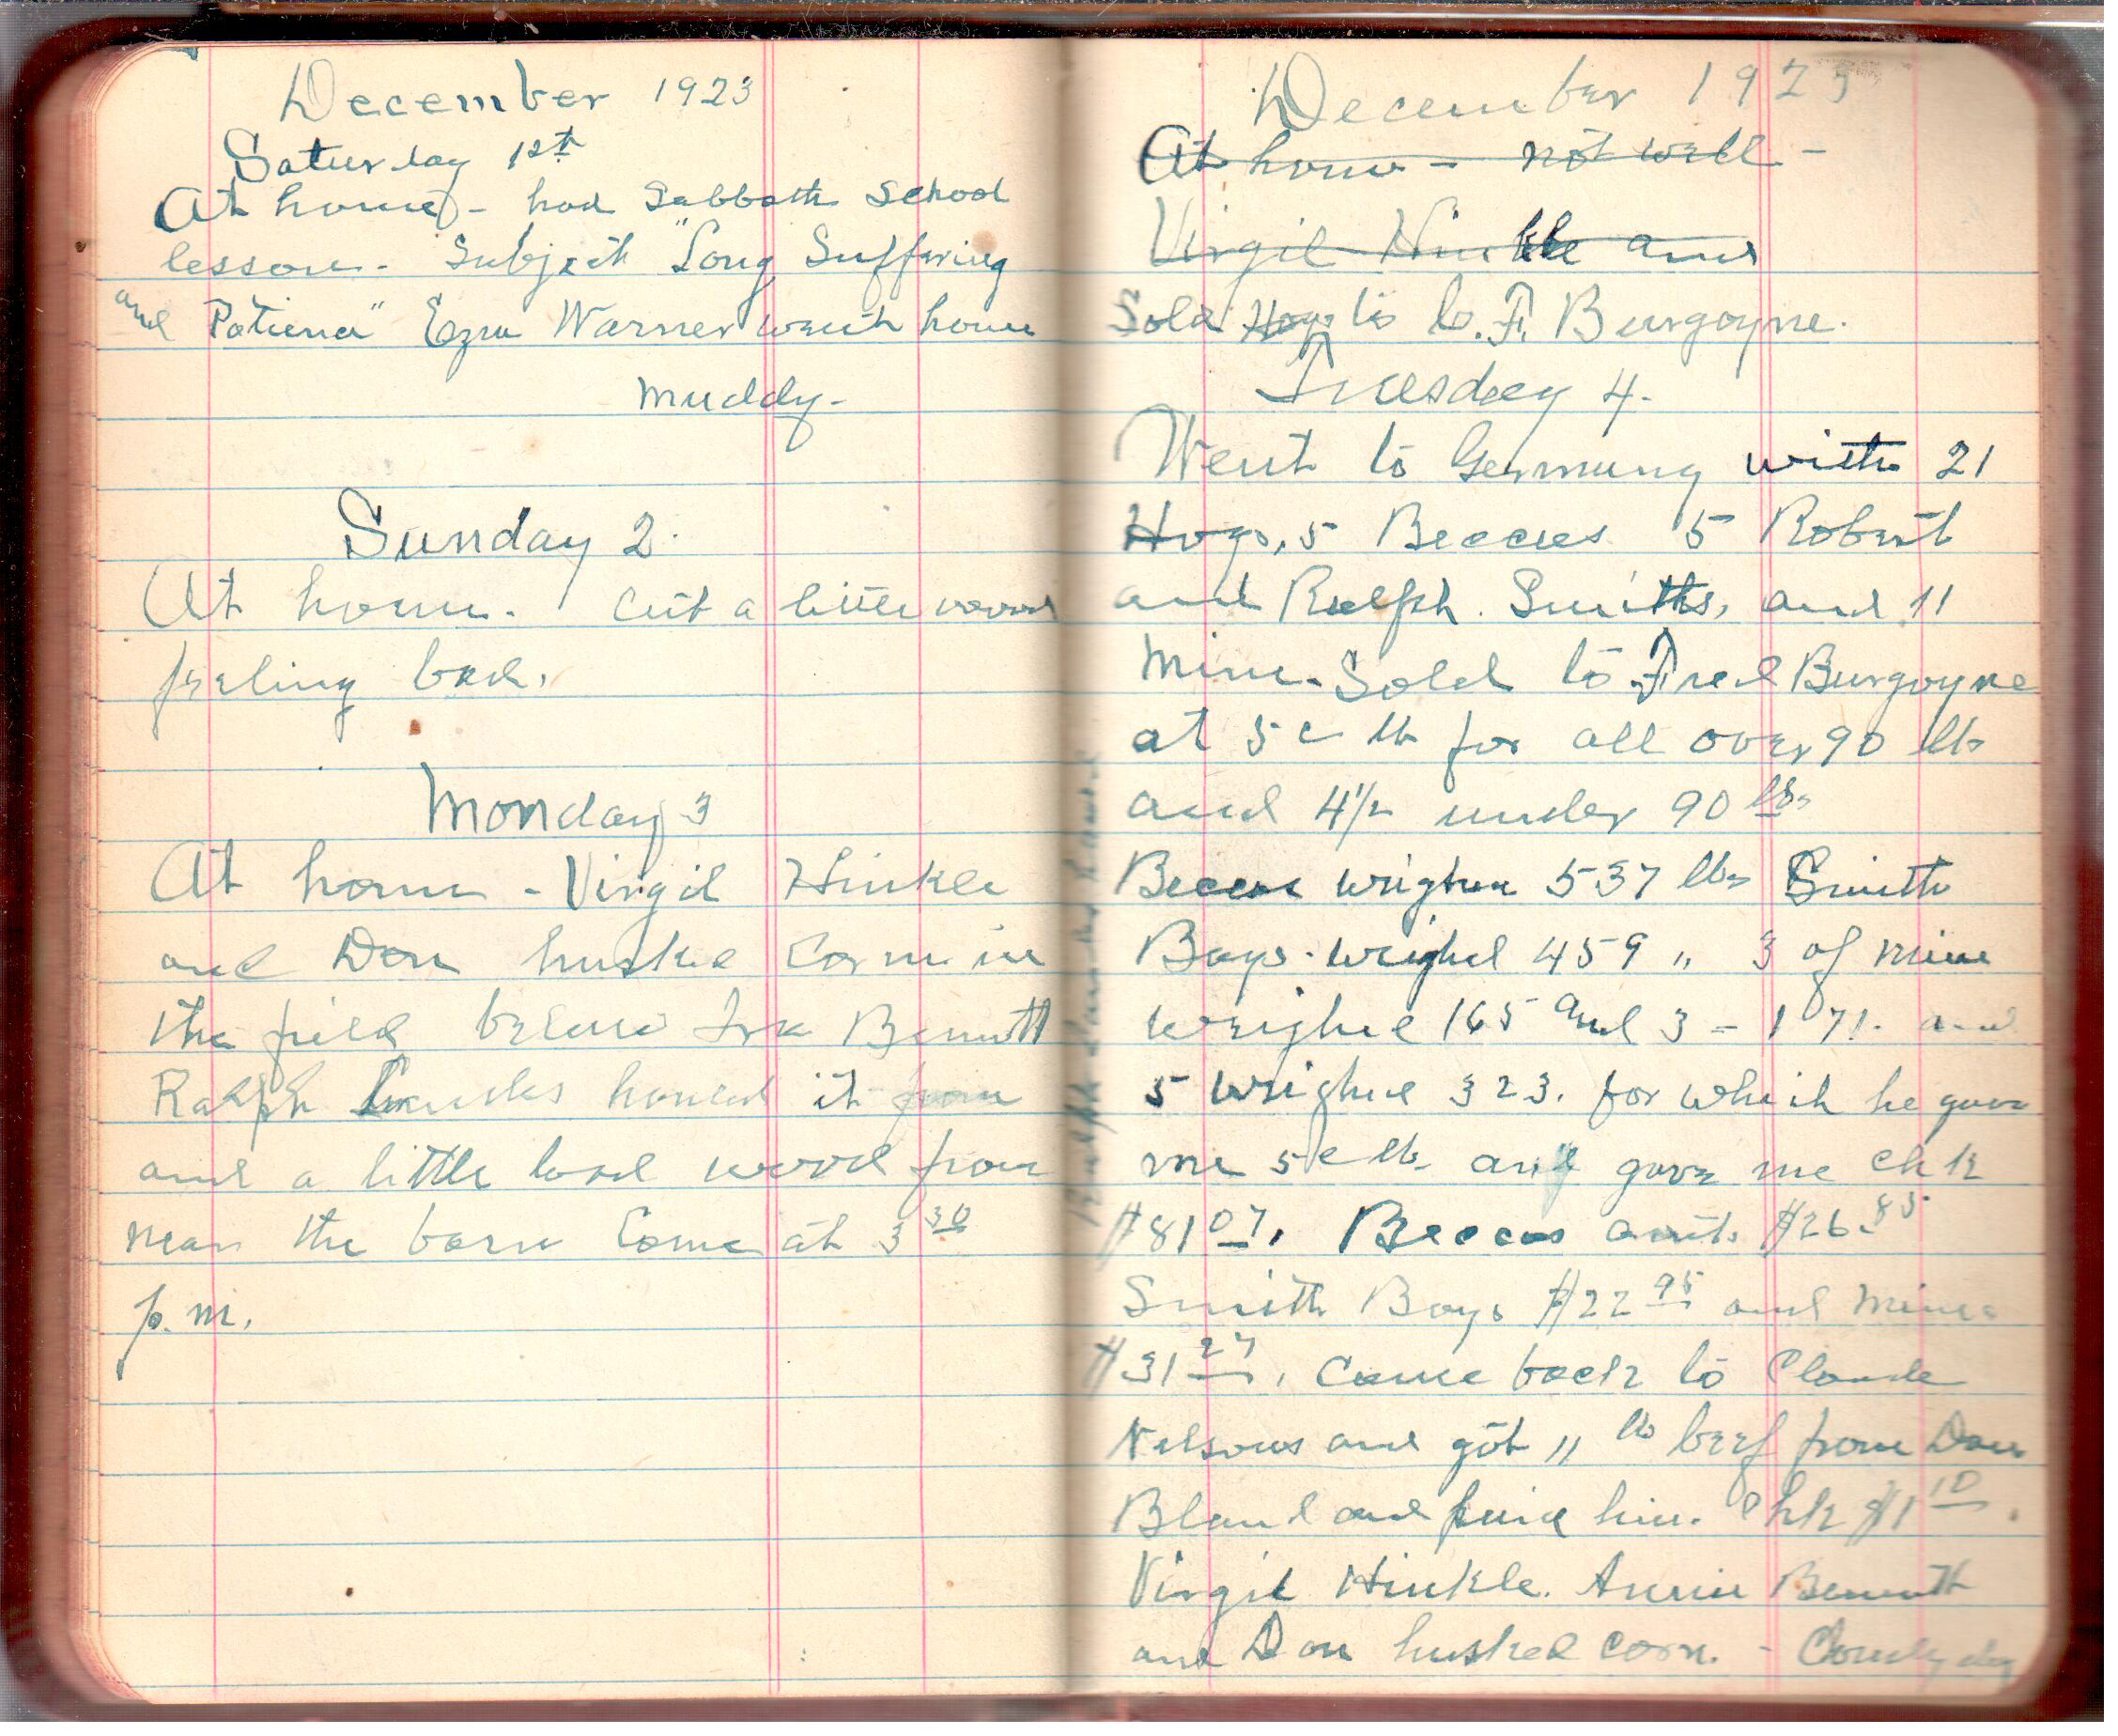 December 1923
Saturday 1st
At home - had Sabbath School
lesson - Subject "Long Suffering
and Patience" Ezra Warner went home
muddy -
Sunday 2.
At home. Cut a little wood
feeling bad.
Monday 3
At home - Virgil Hinkle
and Don husked Corn in
the field below Ira Bennett
Ralph hauled it from
and a little load wood from
near the barn Came at 3 30
p.m.
December 1923
At home - not well -
Virgil Hinkle and
Sold Hogs to C. F. Burgoyne.
Tuesday 4.
Went to Germany with 21
Hogs, 5 Beccas 5 Robert
and Ralph Smiths, and 11
Mine - Sold to Fred Burgoyne
at 5 c lb for all over 90 lb
and 4 1/2 under 90 lbs
Beccas weighed 537 lbs Smith
Boys - weighed 459 " 3 of mine
weighed 165 and 3 - 171. and
5 weighed 323. for which he gave
me 5 c lb. and gave me chk
$81 07. Beccas amt. $26.85
Smith Boys $22 95 and Mine
$31 27. Came back to Claude
Nelsons and got 11 lb beef from Dan
Bland and paid him Chk $1 10.
Virgil Hinkle. Annie Bennett
and Don husked corn. - Cloudy day